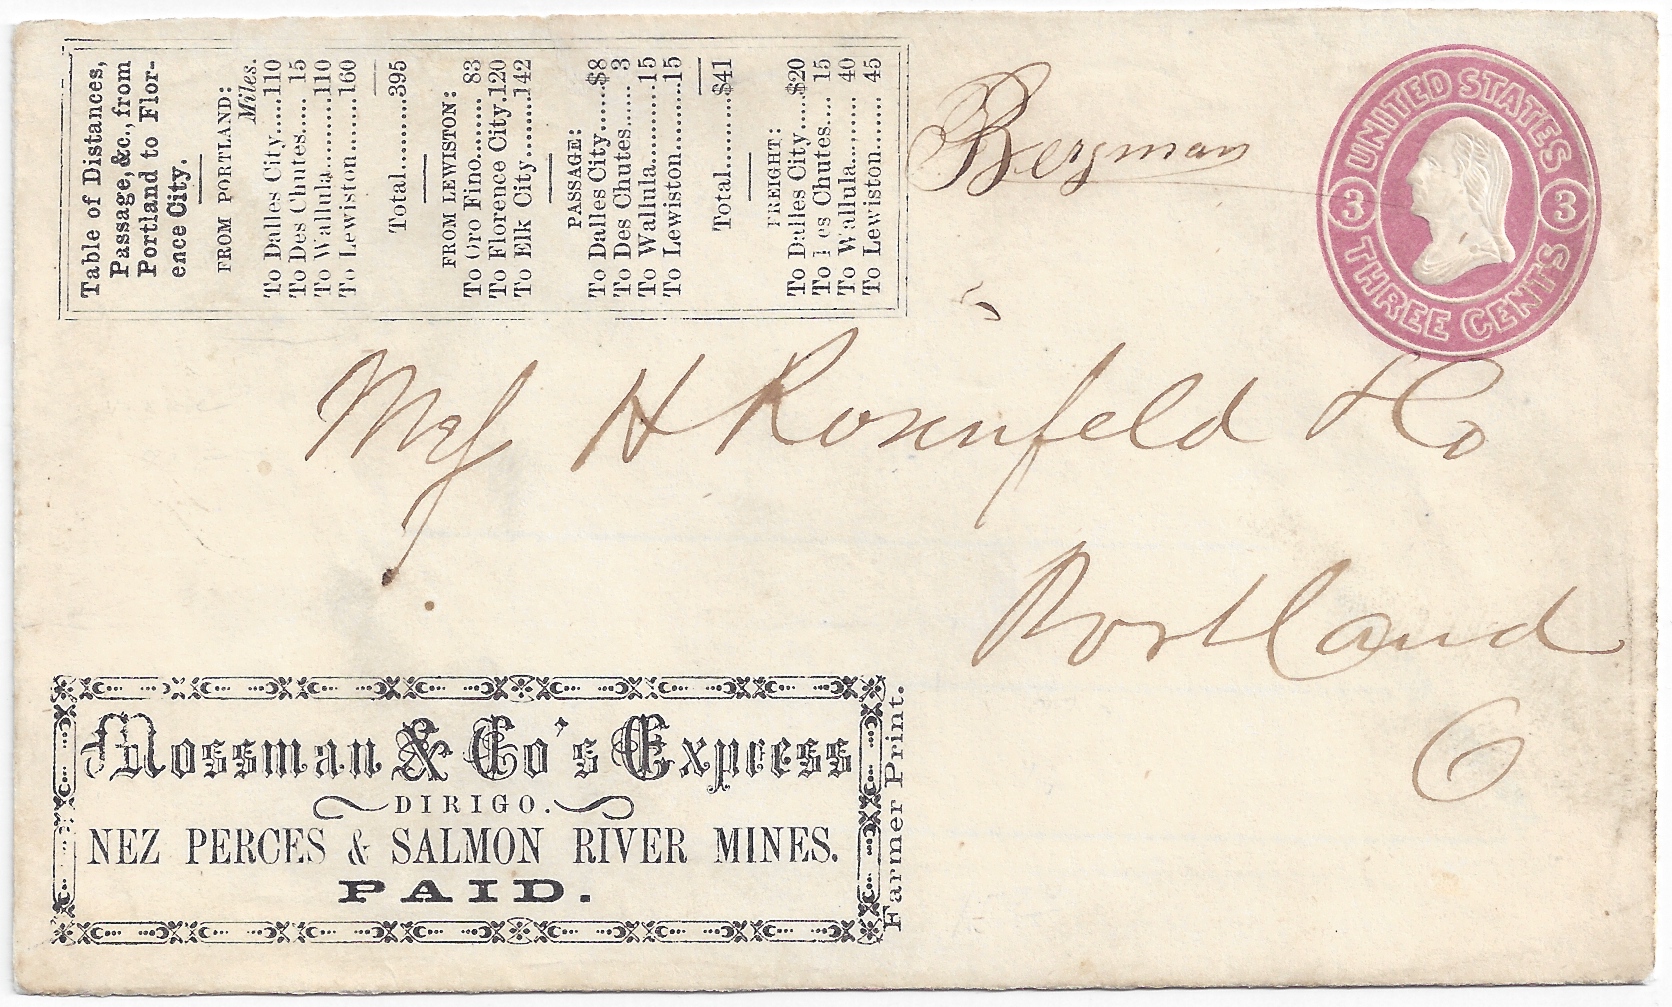 Table of Distances,
Passage, &c., from
Portland to Flor-
ence City.
FROM PORTLAND:
Miles.
To Dalles City.....110
To Des Chutes..... 15
To Wallula..........110
To Lewiston....... 160
Total............395
FROM LEWISTON:
To Oro Fino........ 83
To Florence City.120
To Elk City........142
PASSAGE:
To Dalles City......$8
To Des Chutes...... 3
To Wallula...........15
To Lewiston.........15
Total...........$41
FREIGHT:
To Dalles City....$20
To Des Chutes.... 15
To Wallula........ 40
To Lewiston...... 45
Bergman
UNITED STATES
3 3
THREE CENTS
H Rosenfeld & Co
Portland
O
Mossman & Co's Express
DIRIGO.
NEZ PERCES & SALMON RIVER MINES.
PAID.
Farmer Print.